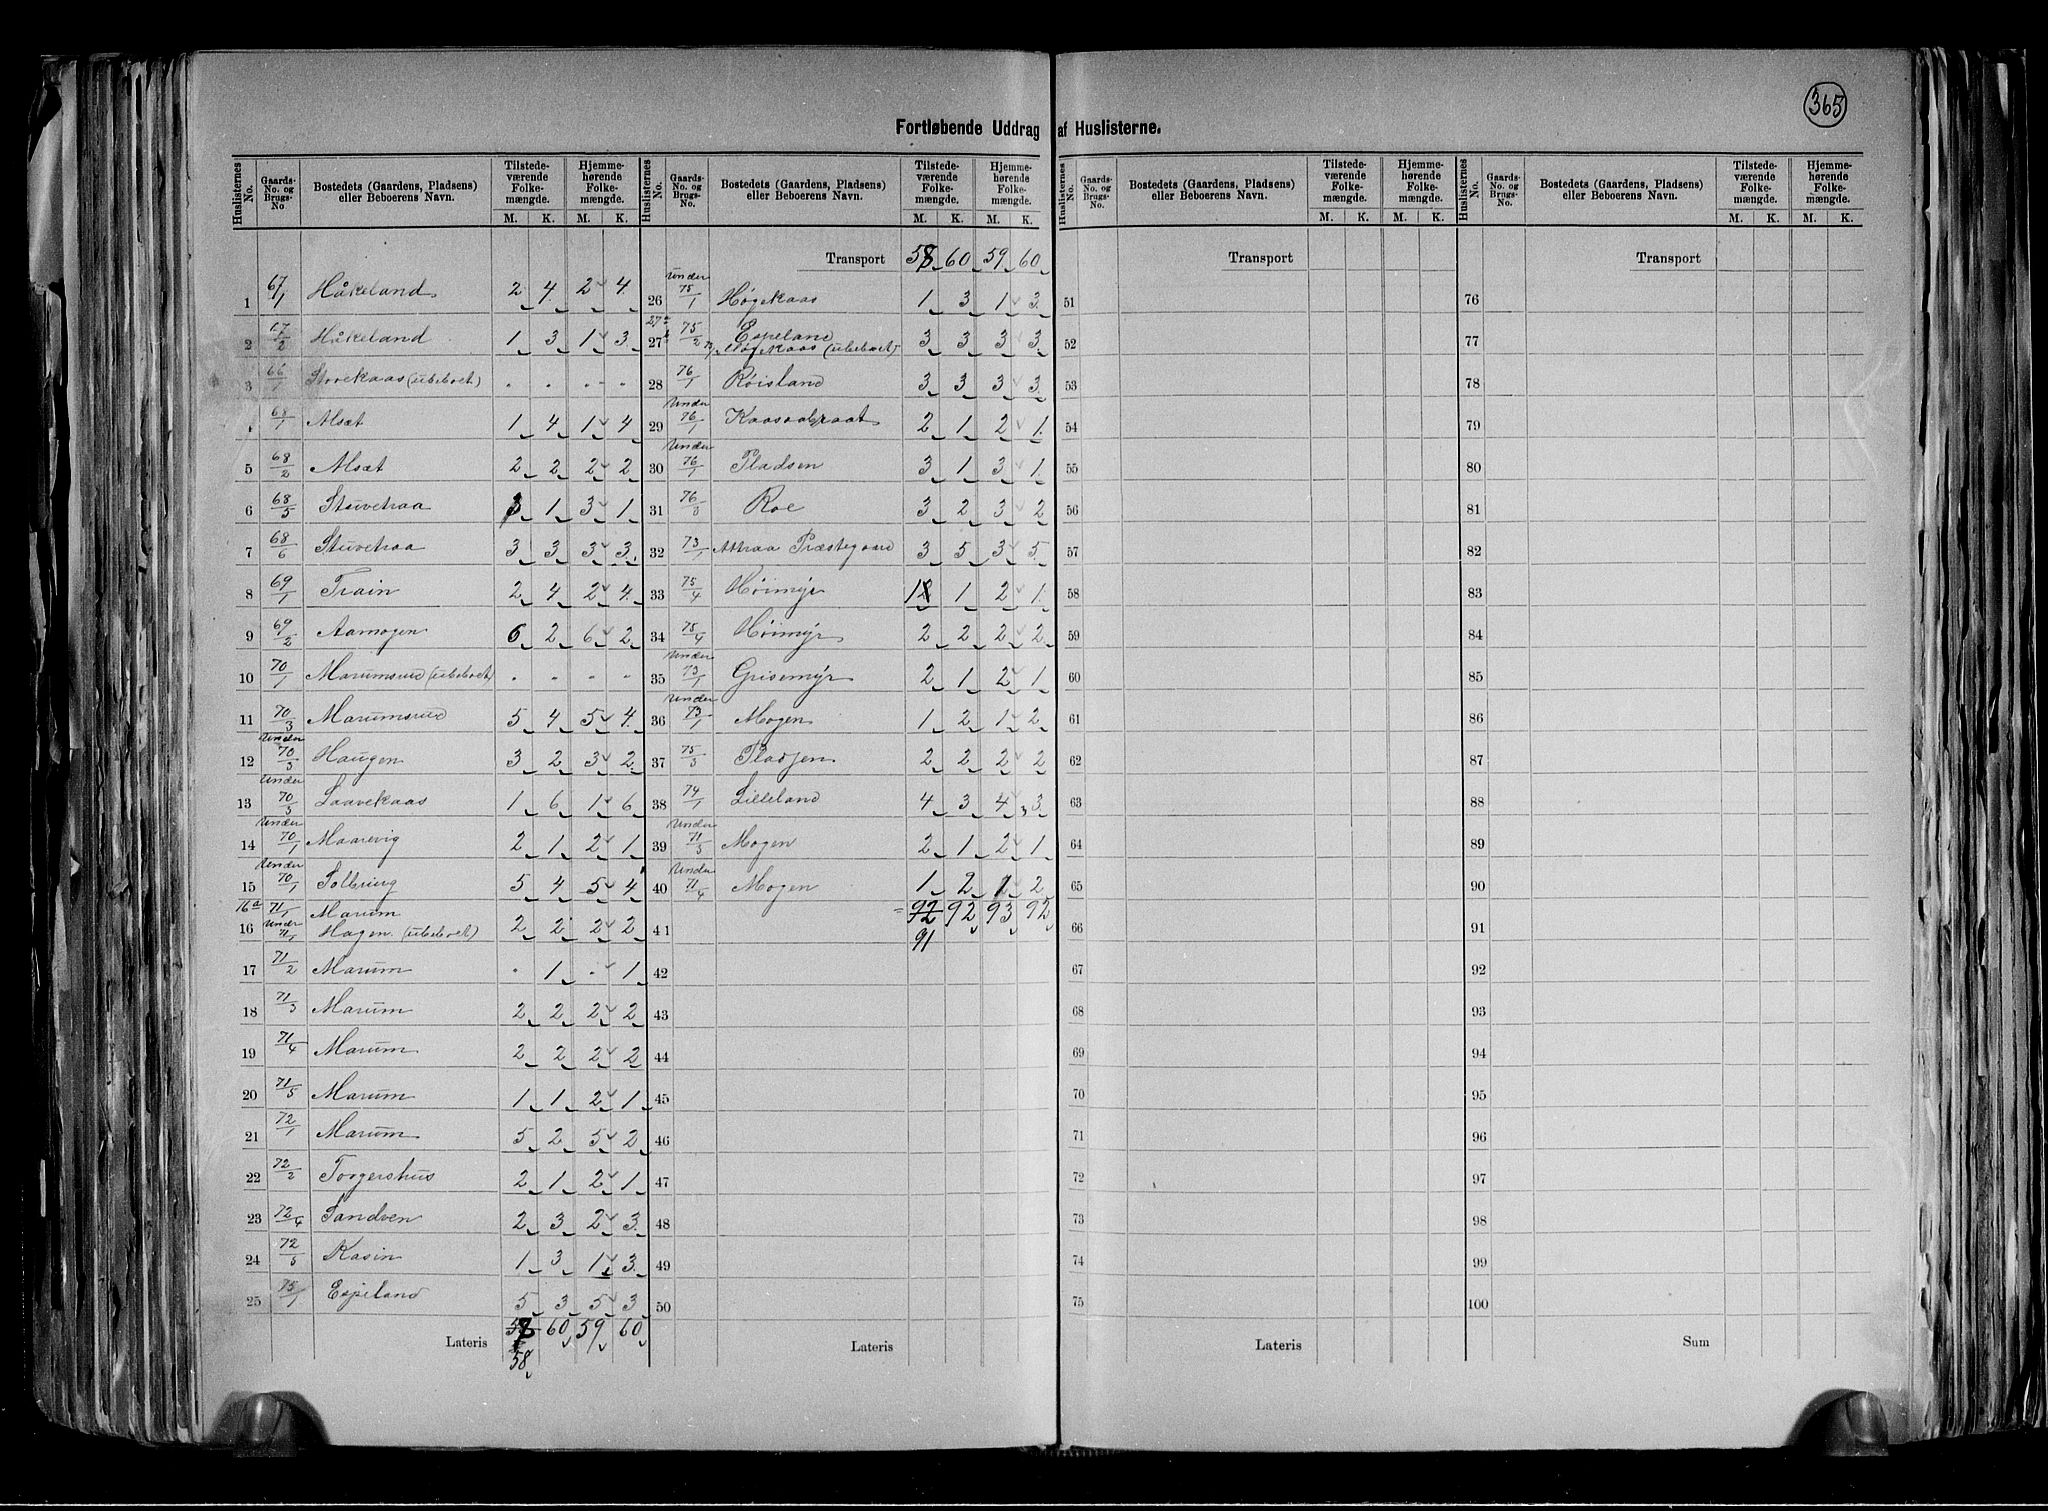 365
Fortløbende Uddrag af Huslisterne.
Huslisternes No. | Gaards-No. og Brugs-No. | Bostedets (Gaardens, Pladsens) eller Beboerens Navn. | Tilstedeværende Folkemængde. M. K. | Hjemmehørende Folkemængde. M. K.
1 67/1 Håkeland 2 4 2 4
2 67/2 Håkeland 1 3 1 3
3 66/1 Storekaas (ubeboet) " " " "
68/1 Alsæt 1 4 1 4
5 68/2 Alsæt 2 2 2 2
6 68/5 Stuvetraa 3 1 3 1
7 68/6 Stuvetraa 3 3 3 3
8 69/1 Train 2 4 2 4
9 69/2 Aamogen 6 2 6 2
10 70/1 Marumsrud (ubeboet) " " " "
11 70/3 Marumsrud 5 4 5 4
12 Under 70/3 Haugen 3 2 3 2
13 Under 70/3 Laavekaas 1 6 1 6
14 Under 70/1 Maarevig 2 1 2 1
15 Under 70/1 Solbring 5 4 5 4
16a 71/1 Marum
16 Under 71/1 Hagen (ubeboet) 2 2 2 2
17 71/2 Marum " 1 " 1
18 71/3 Marum 2 2 2 2
19 71/4 Marum 2 2 2 2
20 71/5 Marum 1 1 2 1
21 72/1 Marum 5 2 5 2
22 72/2 Torgershus 2 1 2 1
23 72/4 Sandven 2 3 2 3
24 72/5 Kasin 1 3 1 3
25 75/1 Espeland 5 3 5 3
Lateris 58 60 59 60
58
Huslisternes No. | Gaards-No. og Brugs-No. | Bostedets (Gaardens, Pladsens) eller Beboerens Navn. | Tilstedeværende Folkemængde. M. K. | Hjemmehørende Folkemængde. M. K.
Transport 58 60 59 60
26 Under 75/1 Høgekaas 1 3 1 3
27a 75/2 Espeland
27 Høgekaas (ubeboet) 3 3 3 3
28 76/1 Röisland 3 3 3 3
29 Under 76/1 2 1 2 1
30 Under 76/1 Pladsen 3 1 3 1
31 76/3 Roe 3 2 3 2
32 73/1 Attraa Præstegaard 3 5 3 5
33 75/4 Höimyr 1 1 2 1
34 75/4 Höimyr 2 2 2 2
35 Under 73/1 Grisemyr 2 1 2 1
36 Under 73/1 Mogen 1 2 1 2
37 75/3 Pladsen 2 2 2 2
38 74/1 Lilleland 4 3 4 3
39 Under 71/5 Mogen 2 1 2 1
40 Under 71/4 Mogen 1 2 1 2
92 92 93 92
41 91
42
43
44
45
46
47
48
49
50
Lateris
Huslisternes No. | Gaards-No. og Brugs-No. | Bostedets (Gaardens, Pladsens) eller Beboerens Navn. | Tilstedeværende Folkemængde. M. K. | Hjemmehørende Folkemængde. M. K.
Transport
51
52
53
54
55
56
57
58
59
60
61
62
63
64
65
66
67
68
69
70
71
72
73
74
75
Lateris
Huslisternes No. | Gaards-No. og Brugs-No. | Bostedets (Gaardens, Pladsens) eller Beboerens Navn. | Tilstedeværende Folkemængde. M. K. | Hjemmehørende Folkemængde. M. K.
Transport
76
77
78
79
80
81
82
83
84
85
86
87
88
89
90
91
92
93
94
95
96
97
98
99
100
Sum